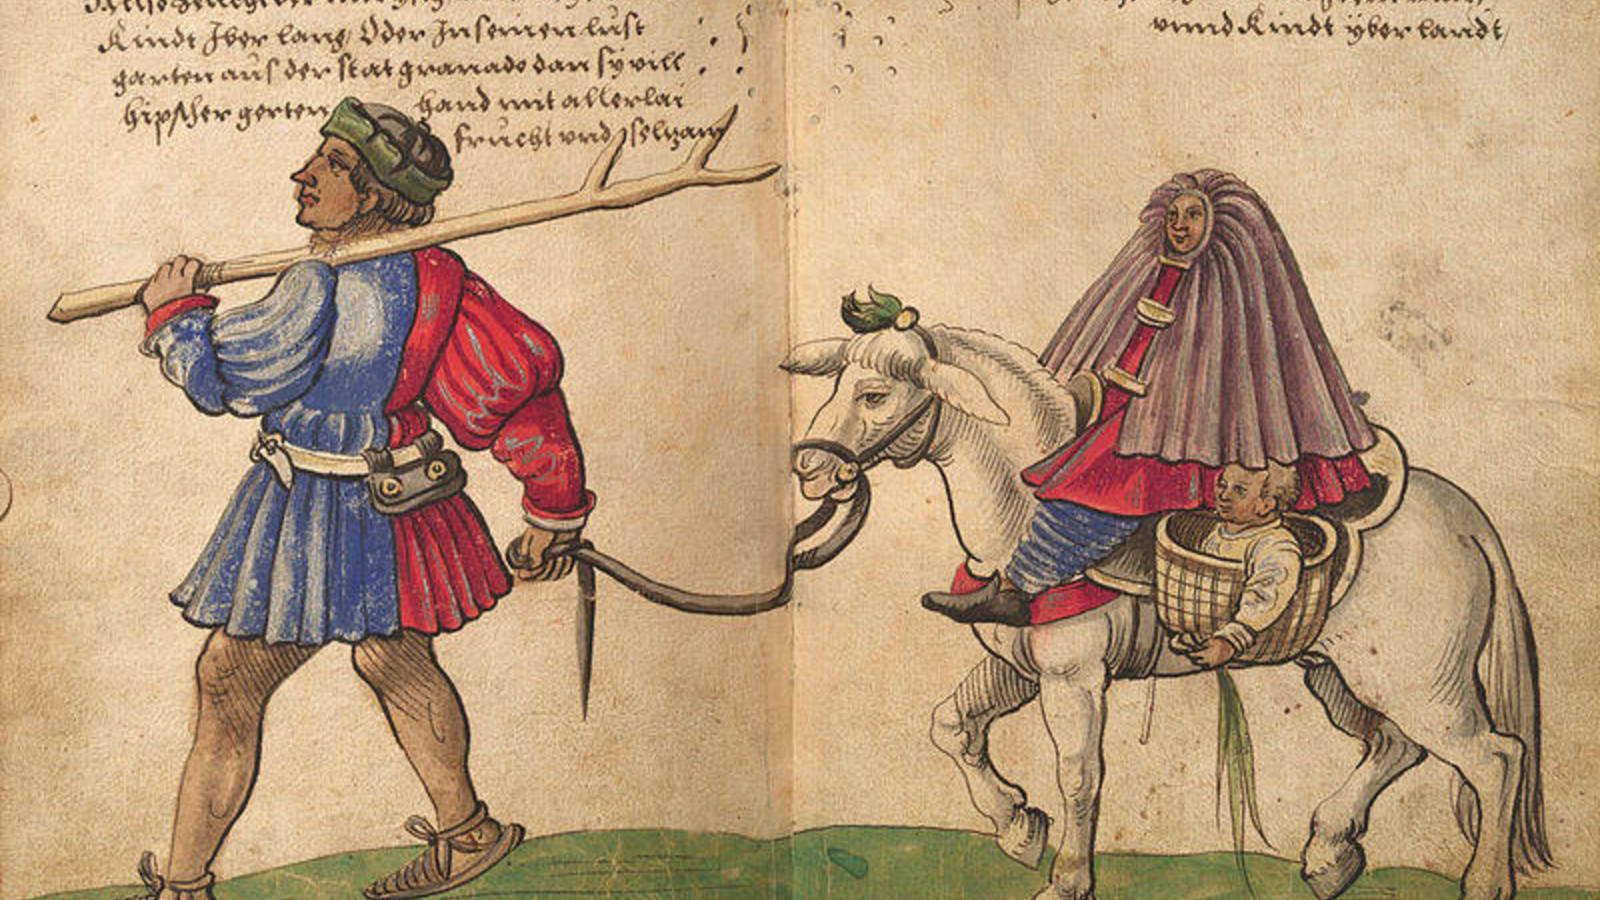 Kindt Iber lang Oder In seinen lust
garten aus der stat granado dan sy vill
hipscher gerten hand mit allerlai
frucht vnd selzam
vnnd Kindt yber landt